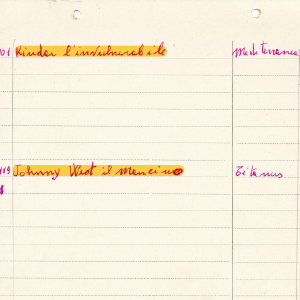 01 Kindar l'invulnerabile Mediterranea
119 Johnny West il mancino Titanus